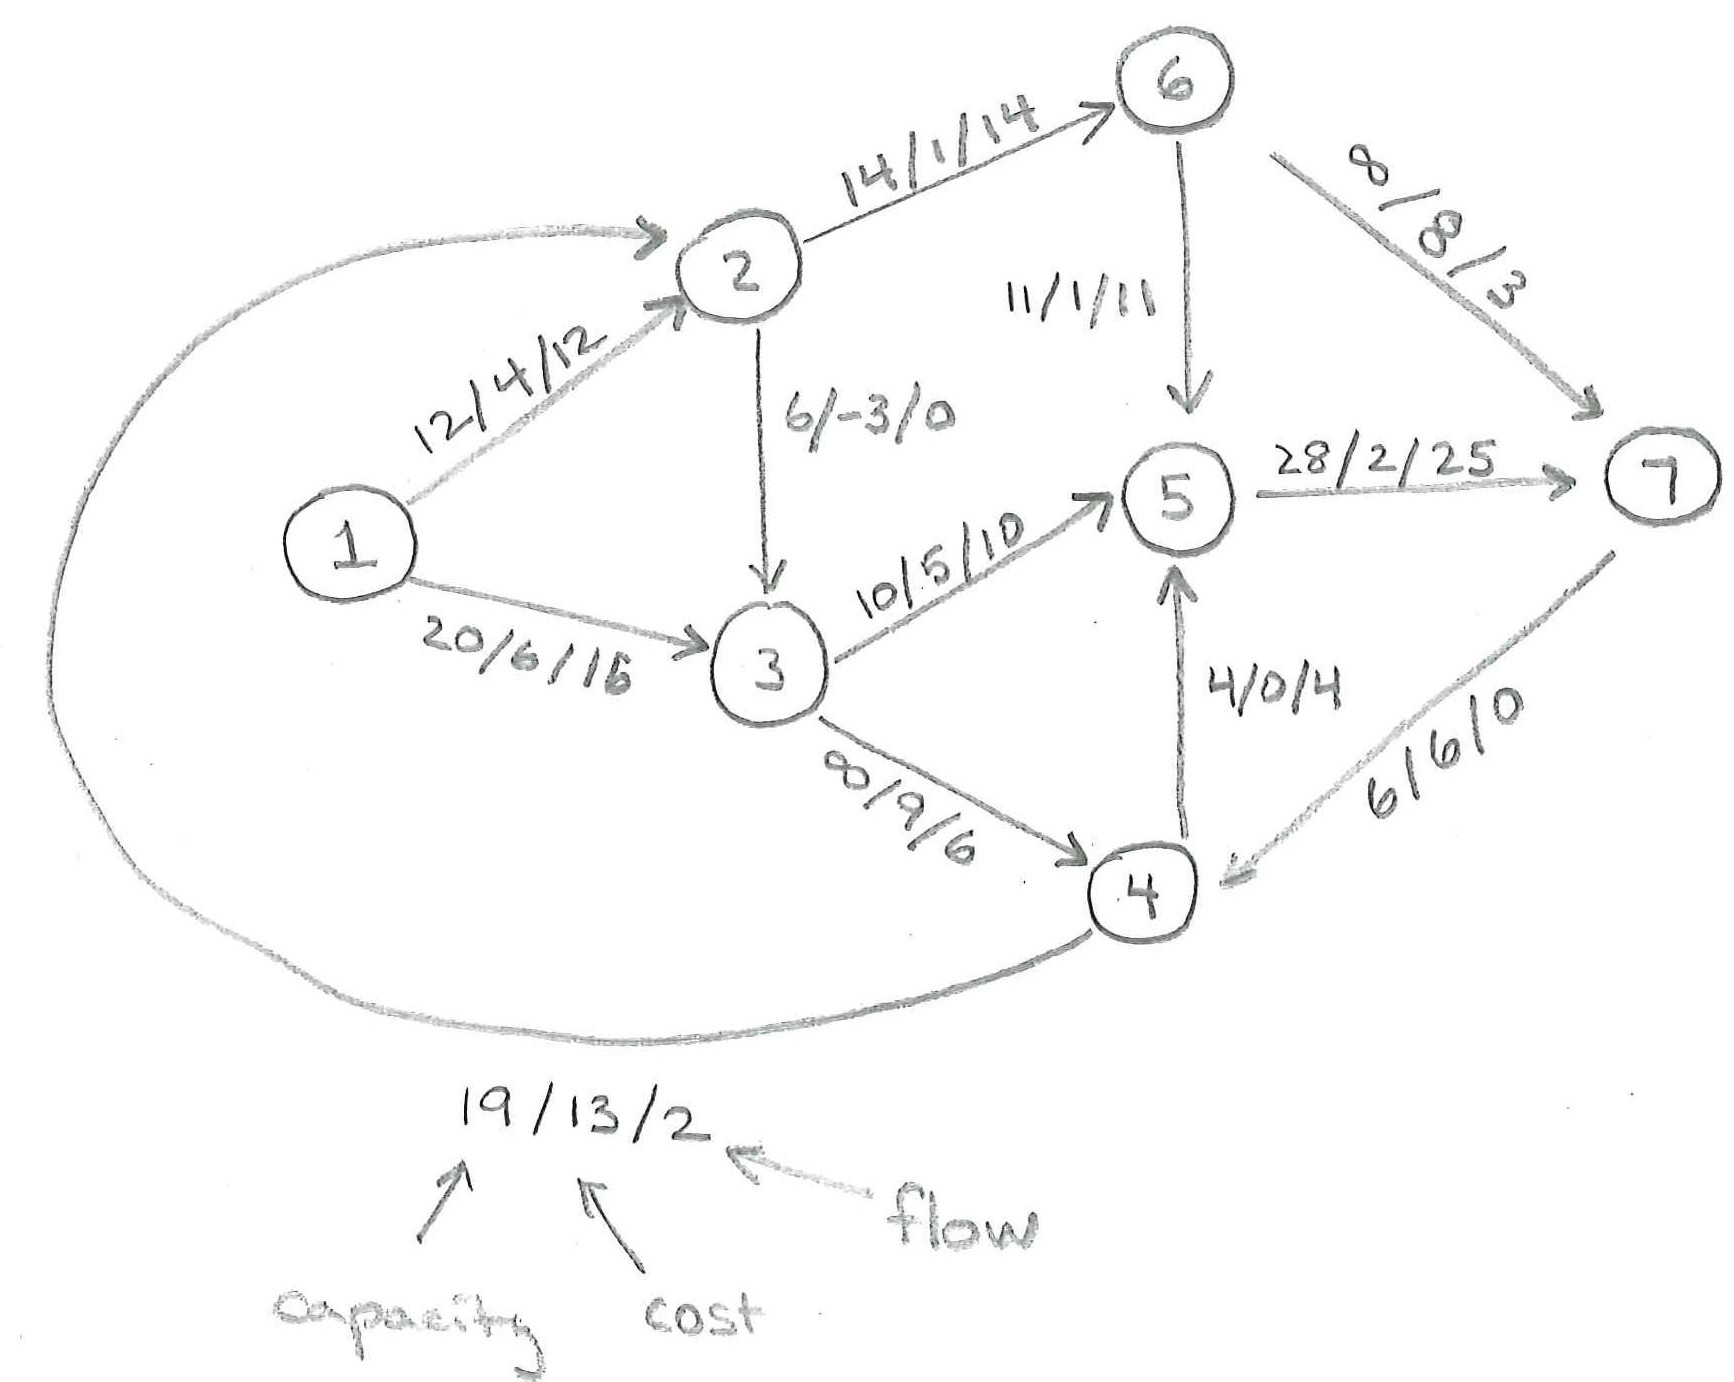 6
14/1/14
8/8/3
2
11/1/11
12/4/12
6/-3/0
28/2/25
7
5
1
10/5/10
20/6/16
3
4/0/4
6/6/0
∞/9/6
4
19/13/2
flow
capacity
cost